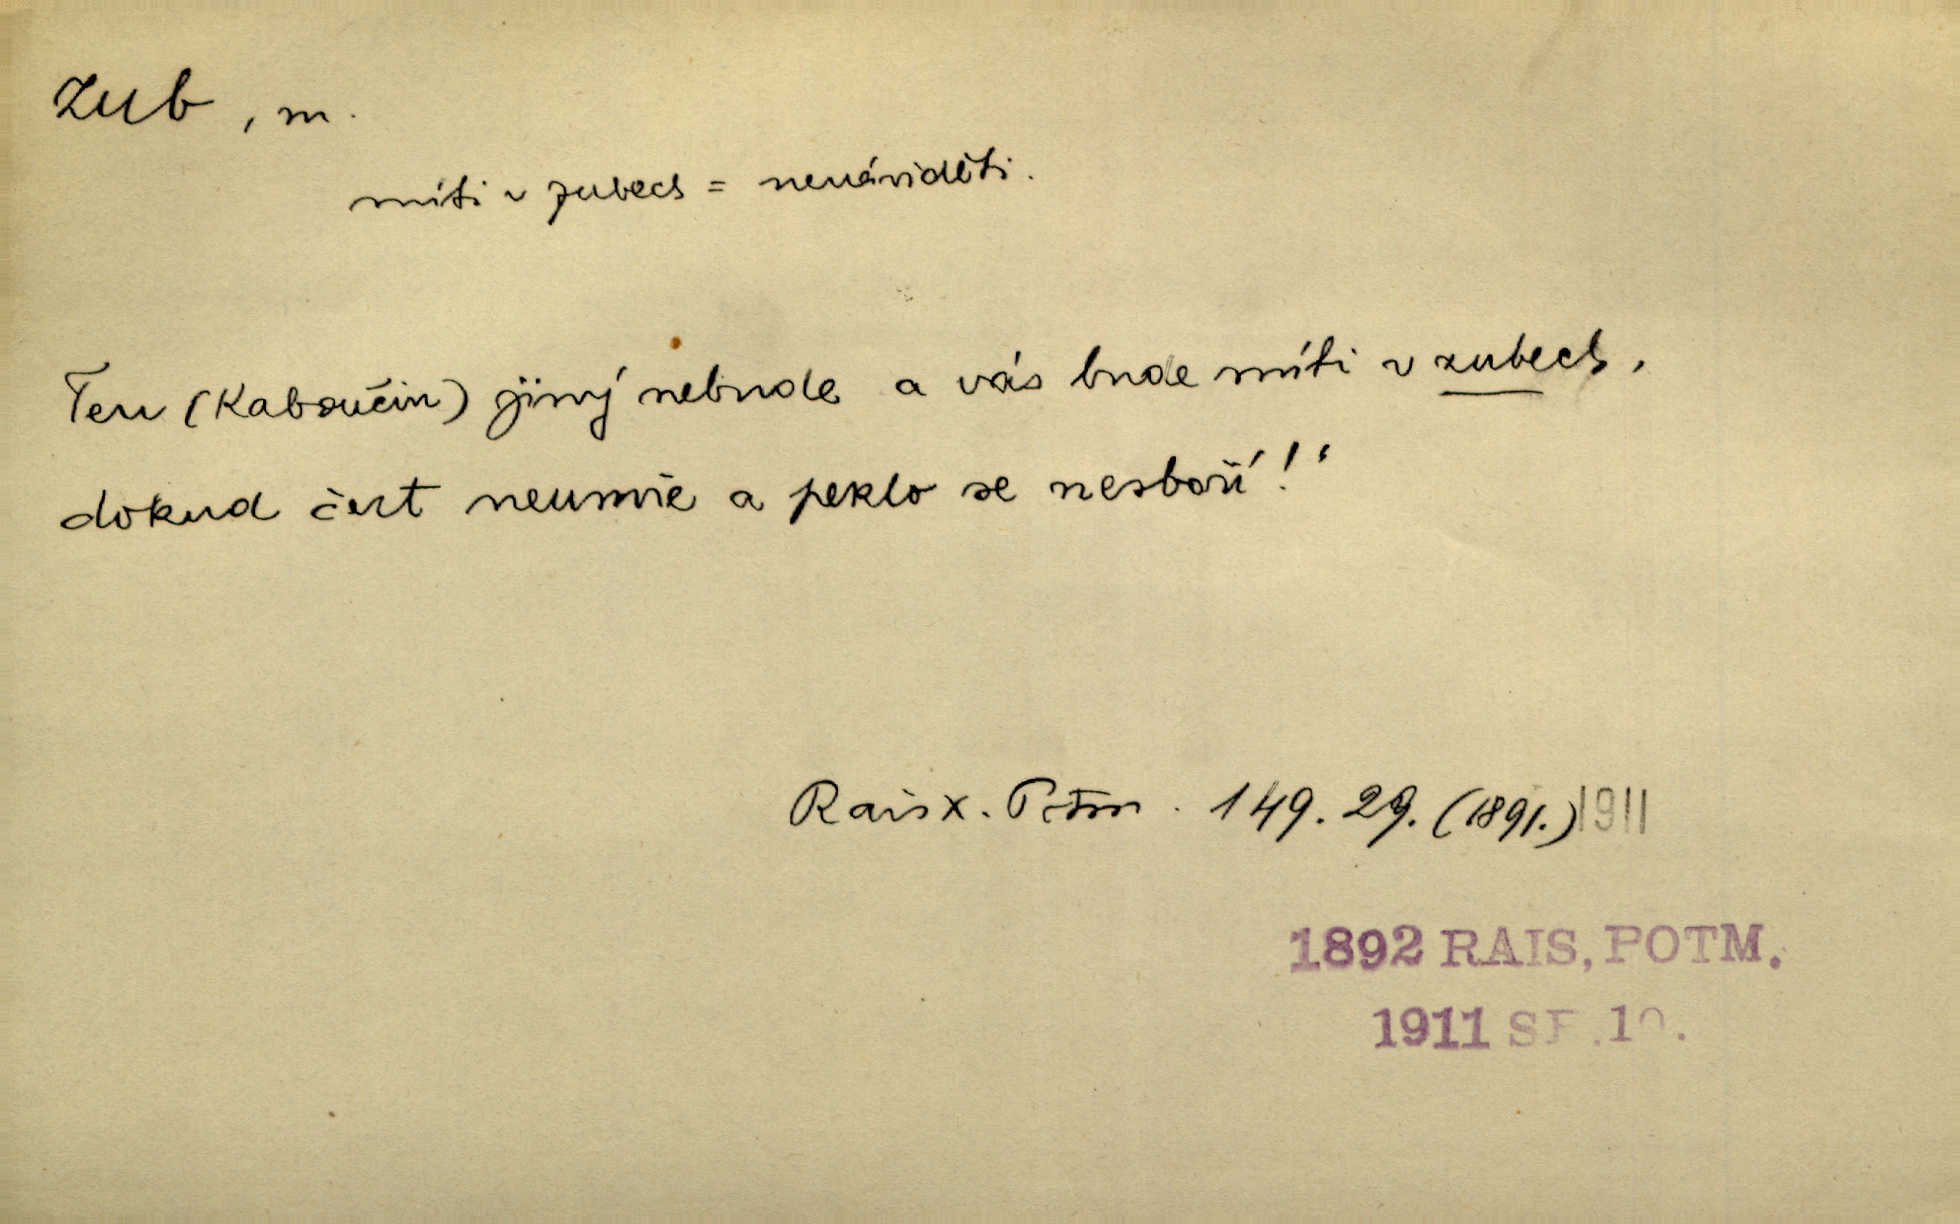 Zub, m.
míti v zubech = nenáviděti.
Ten (Kaboučin) jiný nebude a vás bude míti v zubech,
dokud čert neumře a peklo se nesboří!"
Rais X. Potm. 149. 29. (1891.) 1911
1892 RAIS, POTM.
1911 SF. 10.